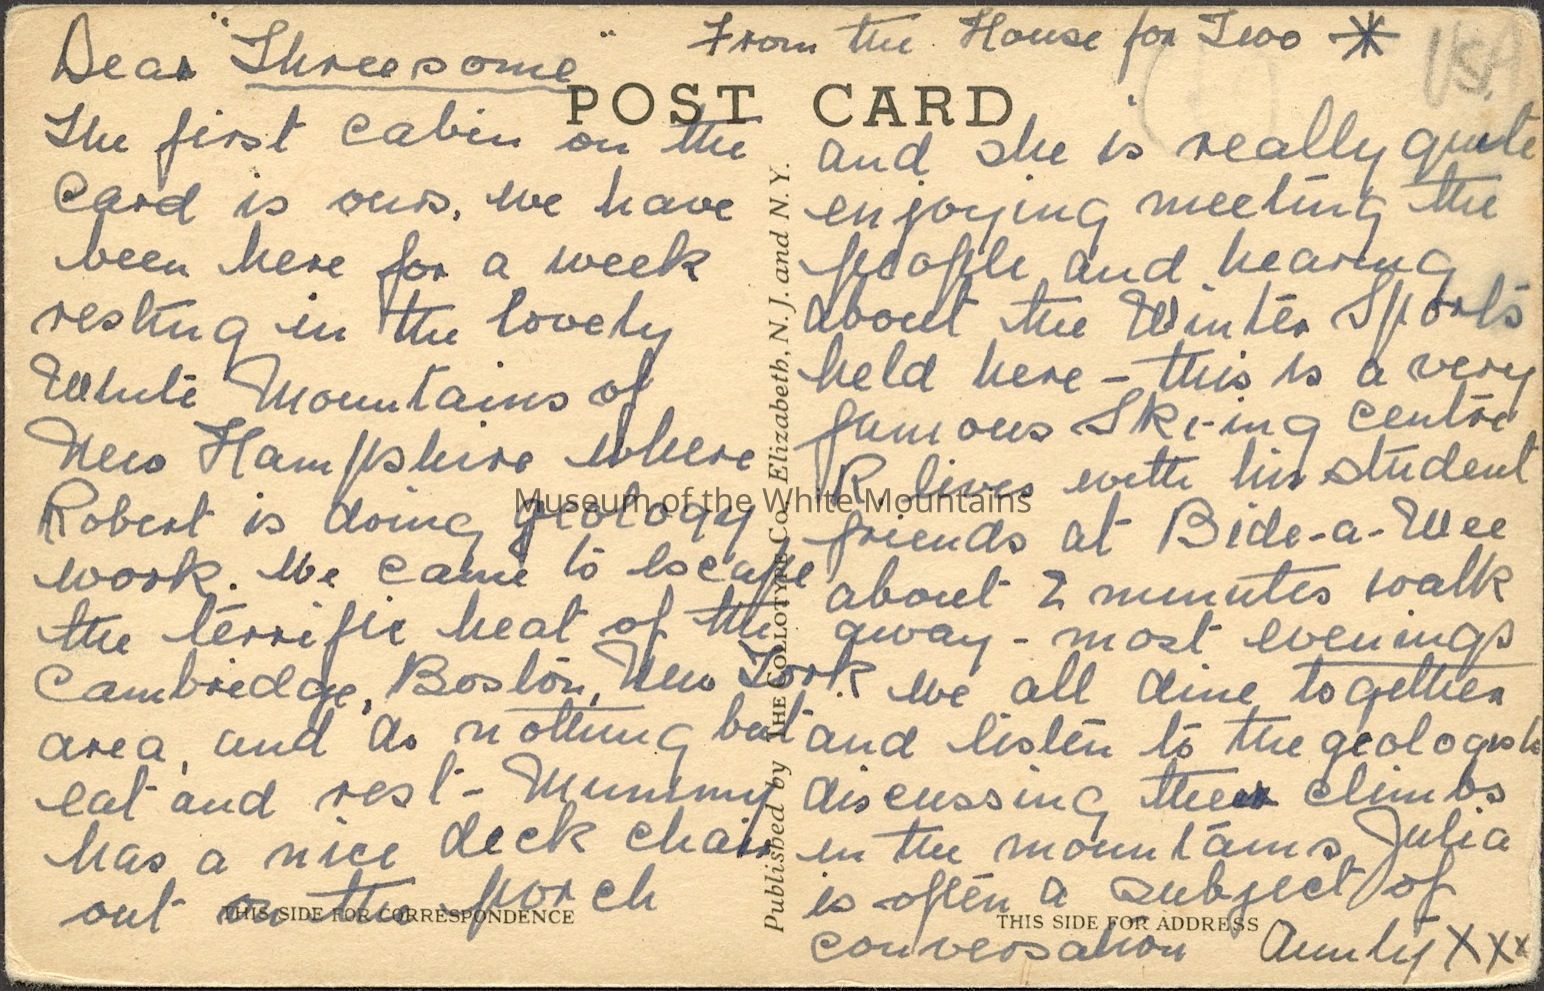 Dear "Threesome"
From the House for Two *
USA
POST CARD
The first cabin on the
card is ours, we have
been here for a week
resting in the lovely
White Mountains of
New Hampshire where
Robert is doing geology
work. We came to escape
the terrific heat of the
Cambridge, Boston, New York
area, and do nothing but
eat and rest - Mummy
has a nice deck chair
out on the porch
THIS SIDE FOR CORRESPONDENCE
Published by THE COLLOTYPE Co., Elizabeth, N. J. and N. Y.
and she is really quite
enjoying meeting the
people and hearing
about the Winter Sports
held here - this is a very
famous Ski-ing centre
R lives with his student
friends at Bide-a-Wee
about 2 minutes walk
away - most evenings
we all dine together
and listen to the geologists
discussing their climbs
in the mountains, Julia
is often a subject of
conversation Aunty XXX
THIS SIDE FOR ADDRESS
Museum of the White Mountains